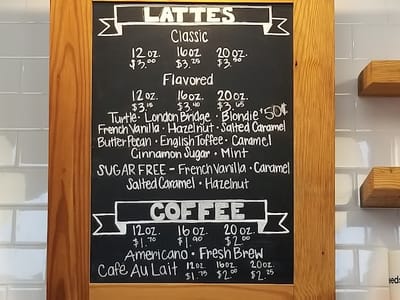 LATTES
Classic
12 oz. 16 oz. 20 oz.
$3.00 $3.25 $3.50
Flavored
12 oz. 16 oz. 20 oz.
$3.15 $3.40 $3.65
Turtle · London Bridge · Blondie +50¢
French Vanilla · Hazelnut · Salted Caramel
Butter Pecan · English Toffee · Caramel
Cinnamon Sugar · Mint
SUGAR FREE - French Vanilla · Caramel
Salted Caramel · Hazelnut
COFFEE
12 oz. 16 oz. 20 oz.
$1.70 $1.90 $2.00
Americano · Fresh Brew
Café Au Lait 12 oz. 16 oz. 20 oz.
$1.75 $2.00 $2.25